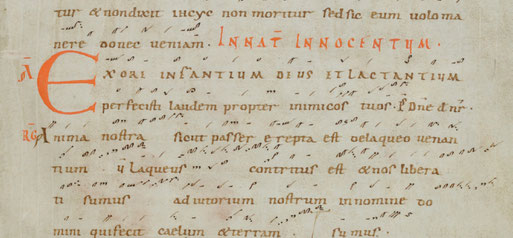 tur & non dixit ihc quia non moritur sed sic eum volo ma
nere donec veniam. IN NAT INNOCENTUM.
A EX ORE INFANTIUM DEUS ET LACTANTIUM
perfecisti laudem propter inimicos tuos. Ps Dne dns nr.
Anima nostra sicut passer erepta est de laqueo venan
tium v Laqueus contritus est & nos libera
ti sumus adiutorium nostrum in nomine do
mini qui fecit caelum & terram. sumus.